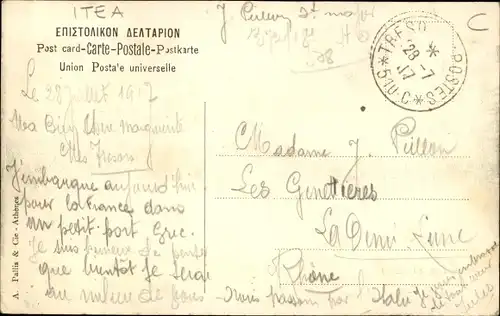 ITEA
ΕΠΙΣΤΟΛΙΚΟΝ ΔΕΛΤΑΡΙΟΝ
Post card-Carte-Postale-Postkarte
Union Postale universelle
TRESOR
POSTES
28-7
17
510
C
Le 28 juillet 1917
Ma Bien Chère Marguerite
Mes Tresors
J'embarque aujourd'hui
pour la France dans
un petit port Grec.
Je suis de penser
que bientôt je serai
au milieu de vous
Nous passons par l'Italie
Madame J.
Les
La Demi-Lune
Rhône
Jules
A. Pallis & Cie - Athènes